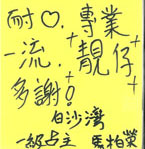 耐♡,專業
一流,靚仔
多謝!
白沙灣
一級占主 馬柏榮